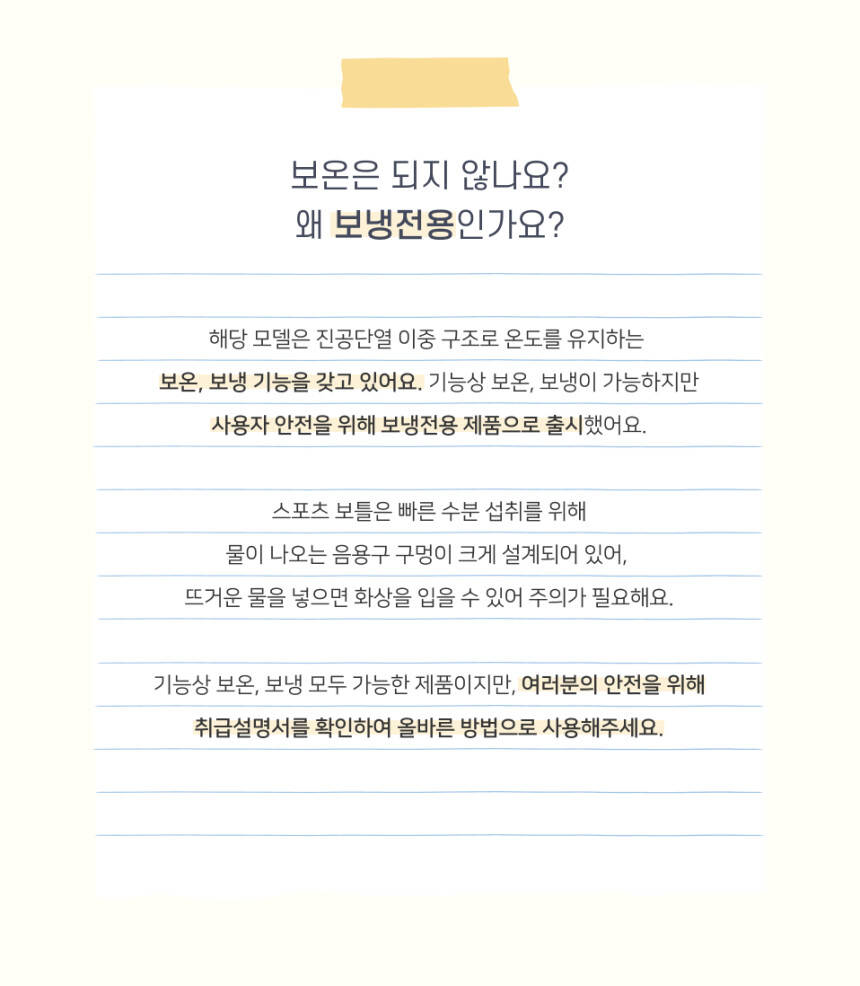 보온은 되지 않나요?
왜 보냉전용인가요?
해당 모델은 진공단열 이중 구조로 온도를 유지하는
보온, 보냉 기능을 갖고 있어요. 기능상 보온, 보냉이 가능하지만
사용자 안전을 위해 보냉전용 제품으로 출시했어요.
스포츠 보틀은 빠른 수분 섭취를 위해
물이 나오는 음용구 구멍이 크게 설계되어 있어,
뜨거운 물을 넣으면 화상을 입을 수 있어 주의가 필요해요.
기능상 보온, 보냉 모두 가능한 제품이지만, 여러분의 안전을 위해
취급설명서를 확인하여 올바른 방법으로 사용해주세요.